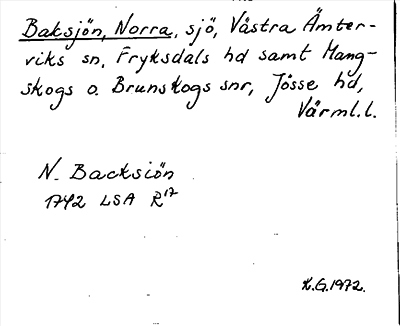 Baksjön, Norra, sjö, Västra Ämter-
viks sn, Fryksdals hd samt Mang-
skogs o. Brunskogs snr, Jösse hd,
Värml.l.
N. Backsiön
1742 LSA R¹⁷
K.G.1972.